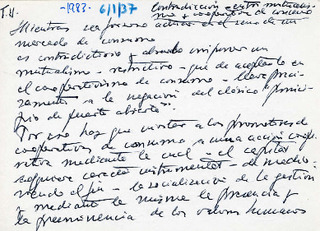 T.U. -1983- 6/1/37 Contradicción entre mutualis-
mo + cooperativa de consumo
Mientras un proceso activo en el seno de un
mercado de consumo
es contradictorio + absurdo imponer un
mutualismo - restrictivo - que de aceptarlo en
el cooperativismo de consumo - lleva preci-
samente a la negación del clásico princi-
pio de puerta abierta".
Por eso hay que invitar a los promotores de
cooperativas de consumo a una acción coope-
rativa mediante la cual - el capital
adquiere carácter instrumental - de medio -
siendo el fin - la socialización de la gestión
- mediante la misma la presencia y
la preeminencia de los valores humanos